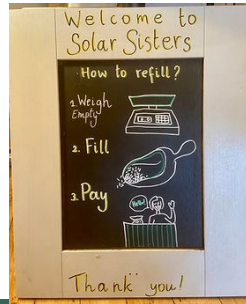 Welcome to
Solar Sisters
How to refill?
1. Weigh
Empty
2. Fill
3. Pay
Hello!
Thank you!